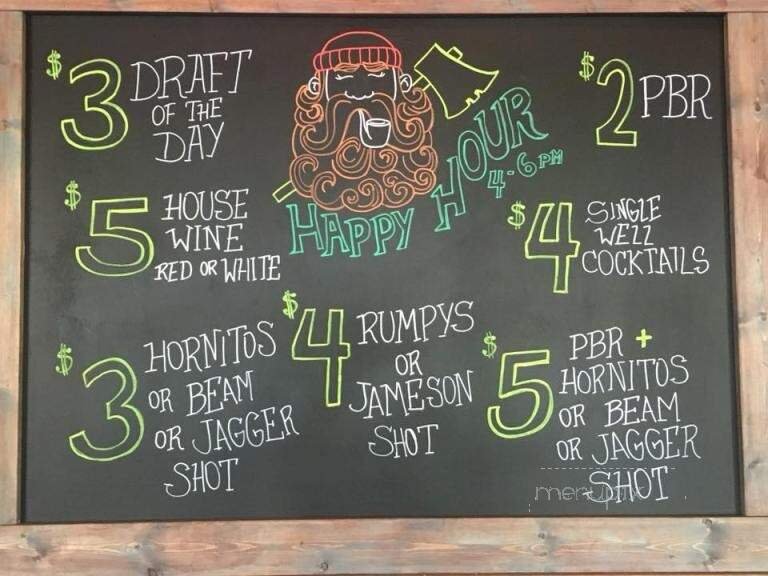 $3 DRAFT
OF THE
DAY
HAPPY HOUR
4-6PM
$2 PBR
$5 HOUSE
WINE
RED OR WHITE
$4 SINGLE
WELL
COCKTAILS
$3 HORNITOS
OR BEAM
OR JAGGER
SHOT
$4 RUMPYS
OR
JAMESON
SHOT
$5 PBR +
HORNITOS
OR BEAM
OR JAGGER
SHOT
menupix